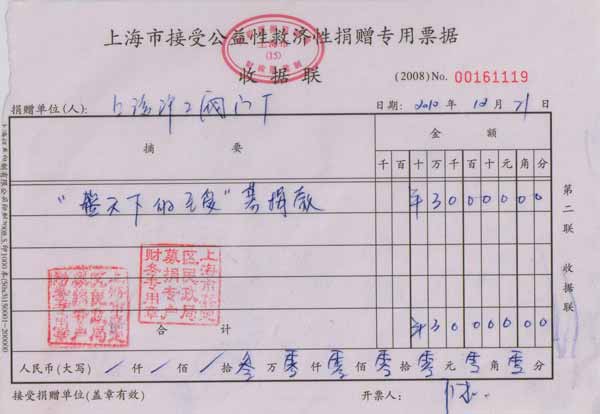 上海市接受公益性救济性捐赠专用票据
上海市
(15)
财政部监制
收据联
(2008) No. 00161119
捐赠单位(人): 上海沪工阀门厂
日期: 2010 年 12 月 21 日
摘要 金额
千 百 十 万 千 百 十 元 角 分
天下 募捐款 ¥ 3 0 0 0 0 0 0
上海市
区民政局
募捐专户
财务专用章
合计 ¥ 3 0 0 0 0 0 0
人民币(大写) / 仟 / 佰 / 拾 叁 万 零 仟 零 佰 零 拾 零 元 零 角 零 分
接受捐赠单位(盖章有效) 开票人:
第二联 收据联